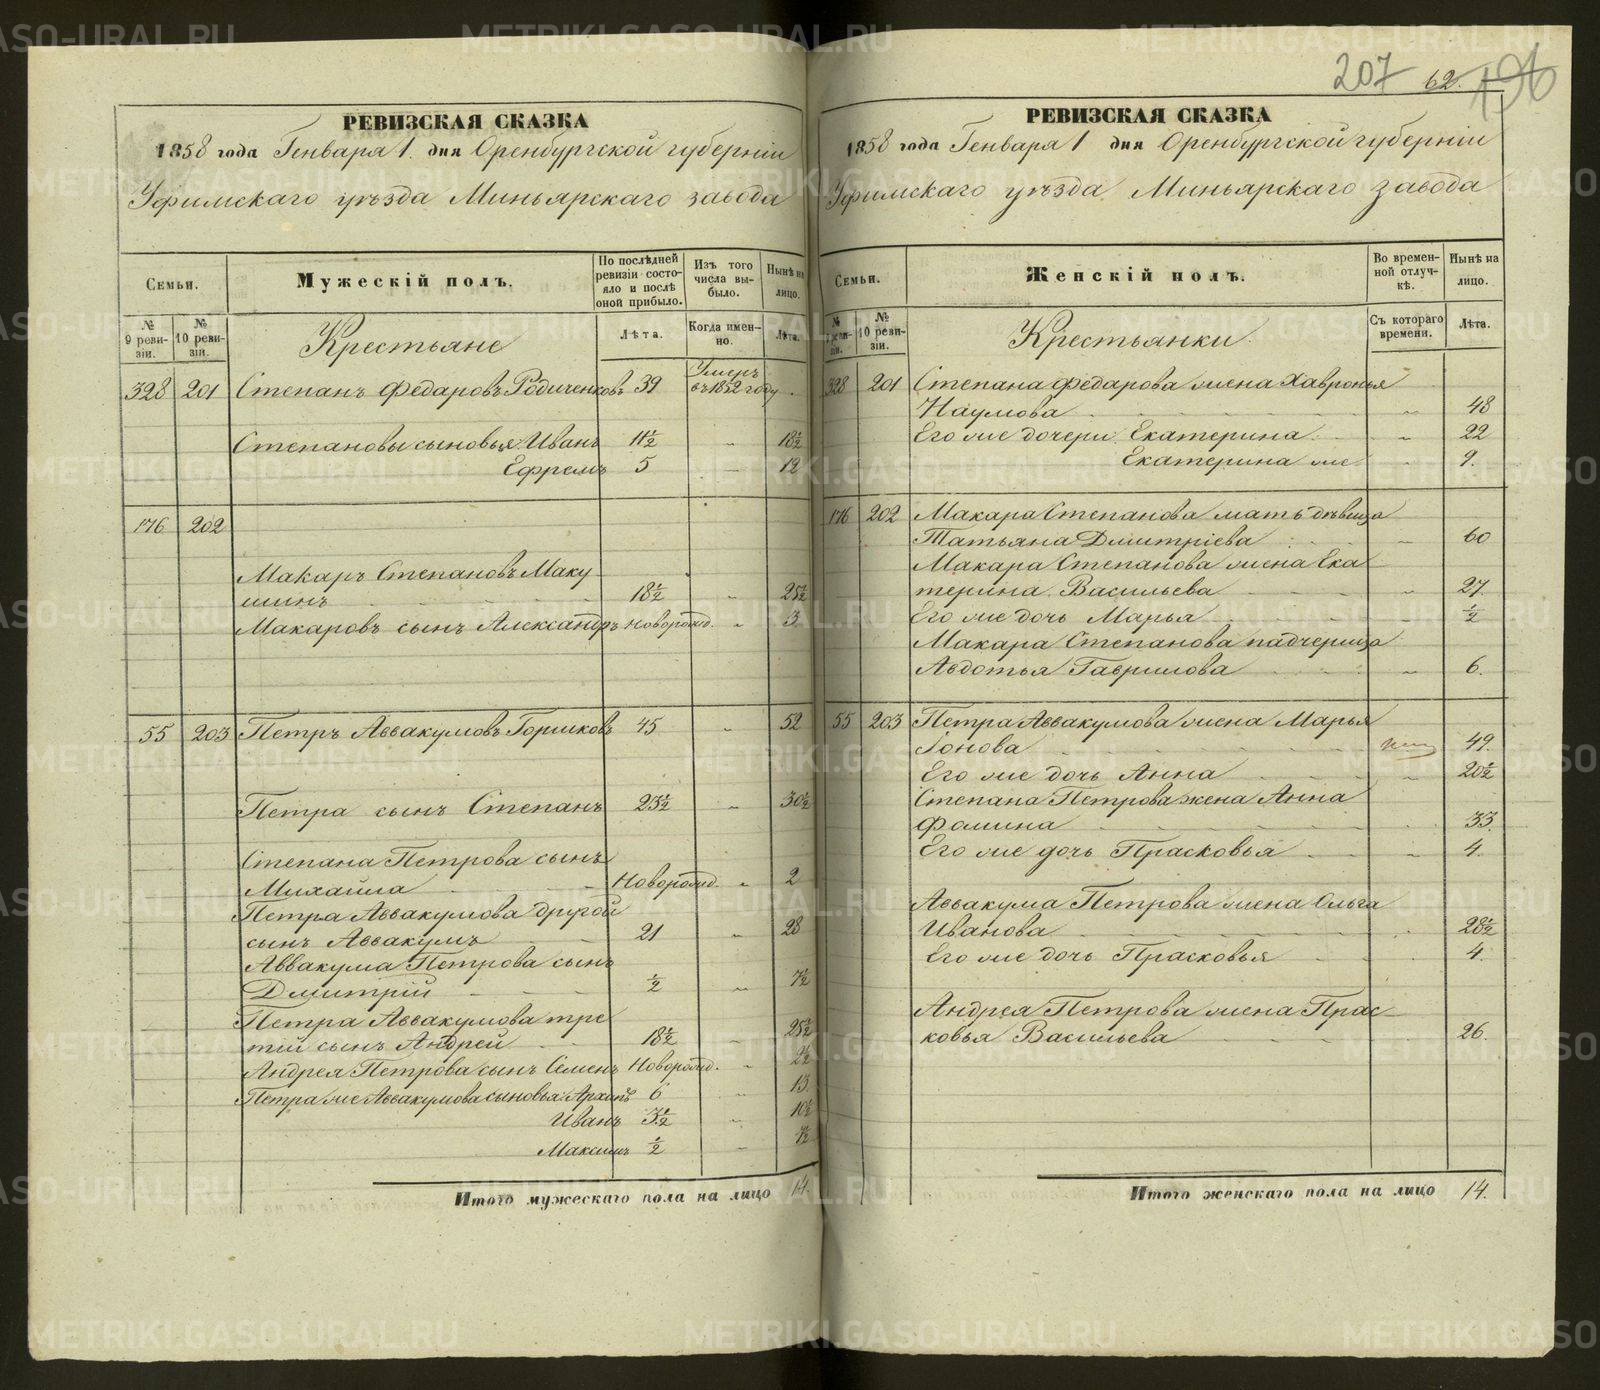 207 62. 196
РЕВИЗСКАЯ СКАЗКА
1858 года Генваря 1. дня Оренбургской губерніи
Уфимскаго уѣзда Миньярскаго завода
Семьи.
Мужескій полъ.
По послѣдней ревизіи состояло и послѣ оной прибыло.
Изъ того числа выбыло.
Нынѣ на лицо.
№ 9 ревизіи.
№ 10 ревизіи.
Крестьяне
Лѣта.
Когда именно.
Лѣта.
328 201 Степанъ Федаровъ Родиченковъ 39 Умеръ въ 1852 году
Степановы сыновья Иванъ 11½ „ 18½
Ефремъ 5 12
176 202
Макаръ Степановъ Маку
шинъ 18½ „ 25½
Макаровъ сынъ Александръ новорожд. „ 3
55 203 Петръ Аввакумовъ Горшковъ 45 „ 52
Петра сынъ Степанъ 23½ „ 30½
Степана Петрова сынъ
Михайла Новорожд. „ 2
Петра Аввакумова другой
сынъ Аввакумъ 21 „ 28
Аввакума Петрова сынъ
Дмитрій ½ „ 7½
Петра Аввакумова тре
тій сынъ Андрей 18½ „ 25½
Андрея Петрова сынъ Семенъ Новорожд. „ 2½
Петра же Аввакумова сыновья Архипъ 6 „ 13
Иванъ 3½ „ 10½
Максимъ ½ „ 7½
Итого мужескаго пола на лицо 14.
РЕВИЗСКАЯ СКАЗКА
1858 года Генваря 1 дня Оренбургской губерніи
Уфимскаго уѣзда Миньярскаго завода
Семьи.
Женскій полъ.
Во временной отлучкѣ.
Нынѣ на лицо.
№ 9 ревизіи.
№ 10 ревизіи.
Крестьянки.
Съ котораго времени.
Лѣта.
328 201 Степана Федарова жена Хавронья
Наумова „ 48
Его же дочери Екатерина „ 22
Екатерина же „ 9.
176 202 Макара Степанова мать дѣвица
Татьяна Дмитріева „ 60
Макара Степанова жена Ека
терина Васильева „ 27.
Его же дочь Марья „ ½
Макара Степанова падчерица
Авдотья Гаврилова „ 6.
55 203 Петра Аввакумова жена Марья
Іонова 49.
Его же дочь Анна „ 20½
Степана Петрова жена Анна
Фомина 33.
Его же дочь Прасковья 4.
Аввакума Петрова жена Ольга
Иванова 28½
Его же дочь Прасковья 4.
Андрея Петрова жена Прас
ковья Васильева 26.
Итого женскаго пола на лицо 14.
METRIKI.GASO-URAL.RU